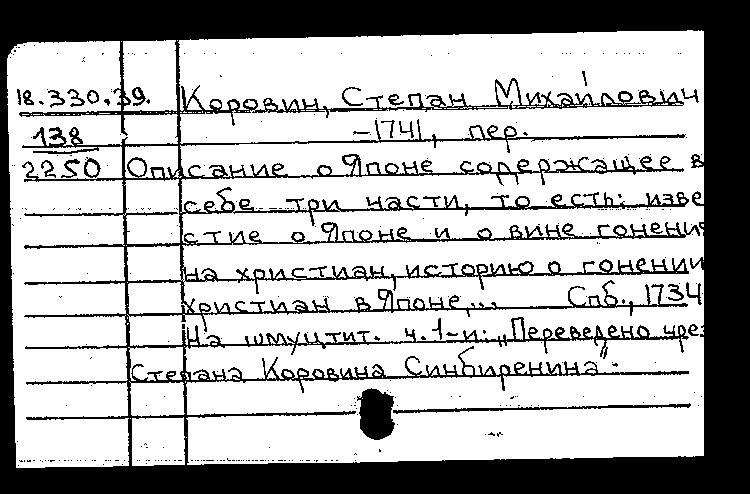 18.330.39. Коровин, Степан Михайлович
138 -1741, пер.
2250 Описание о Японе содержащее в
себе три части, то есть: изве
стие о Японе и о вине гонени
на христиан, историю о гонении
христиан в Японе,... Спб., 1734
На шмуцтит. ч. 1-й: „Переведено чрез
Степана Коровина Синбиренина".